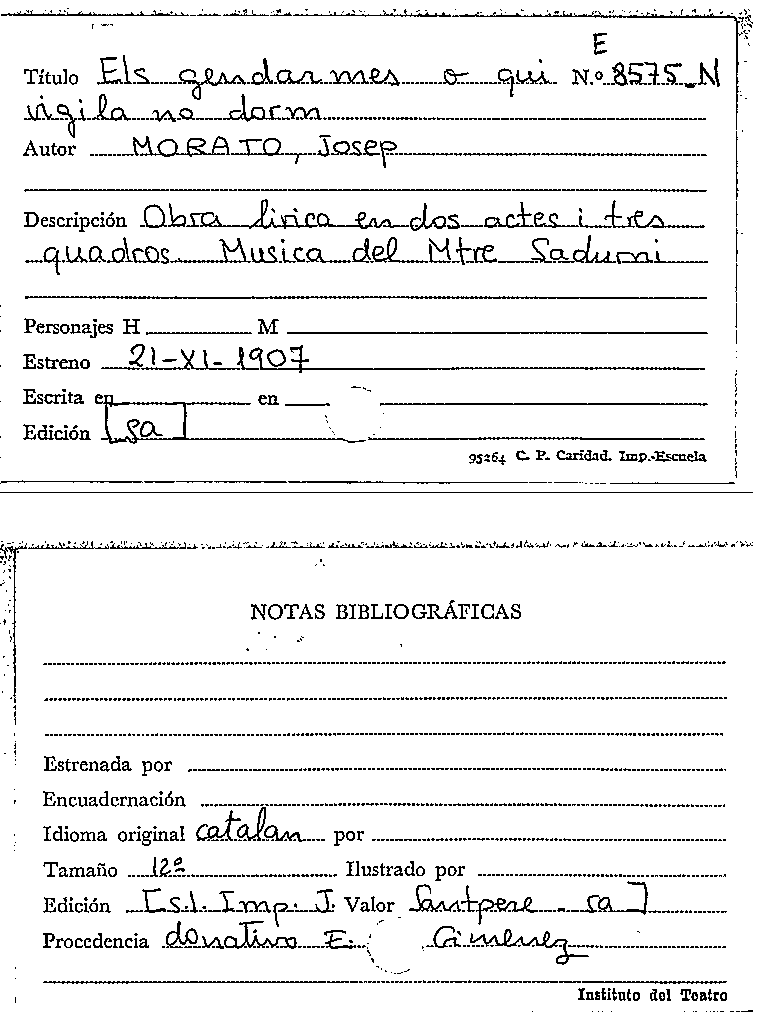 E
Título Els gendarmes o qui N.º 8575-N
vigila no dorm
Autor MORATO, Josep
Descripción Obra lirica en dos actes i tres
quadros. Musica del Mtre Sadurni
Personajes H M
Estreno 21-XI-1907
Escrita en en
Edición [sa]
95264 C. P. Caridad. Imp.-Escuela
NOTAS BIBLIOGRÁFICAS
Estrenada por
Encuadernación
Idioma original catalan por
Tamaño 12º Ilustrado por
Edición [s.l. Imp. J. Valor Santpere - sa]
Procedencia donativo E. Gimenez
Instituto del Teatro